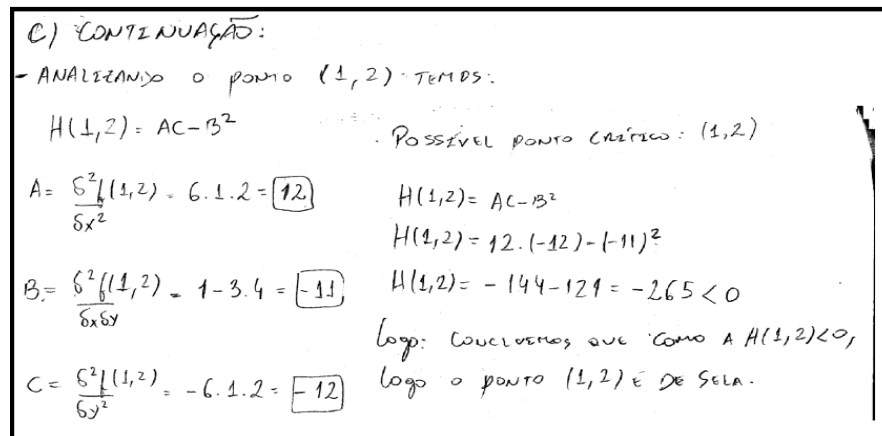 C) CONTINUAÇÃO:
- ANALIZANDO O PONTO (1,2) TEMOS:
H(1,2) = AC - B²
A = δ²f(1,2)/δx² = 6.1.2 = 12
B = δ²f(1,2)/δxδy = 1 - 3.4 = -11
C = δ²f(1,2)/δy² = -6.1.2 = -12
. POSSÍVEL PONTO CRÍTICO: (1,2)
H(1,2) = AC - B²
H(1,2) = 12.(-12) - (-11)²
H(1,2) = -144 - 121 = -265 < 0
Logo: CONCLUEMOS QUE COMO A H(1,2)<0,
Logo O PONTO (1,2) É DE SELA.